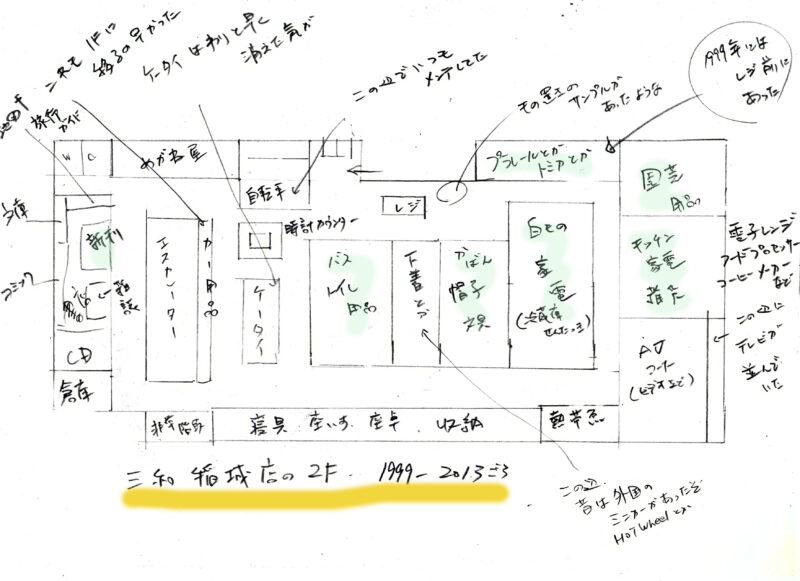 1Fに
移るの早かった
ケータイは割と早く
消えた気が
この辺でいつも
メンテしてた
もの置きの
サンプルが
あったような
1999年には
レジ前に
あった
旅行
ガイド
W C
めがね屋
自転車
プラレールとか
トミカとか
園芸
用品
レジ
時計カウンター
文庫
コミック
新刊
雑誌
CD
倉庫
エスカレーター
カー用品
ケータイ
バス
トイレ
用品
下着とか
かばん
帽子
白もの
家電
(冷蔵庫
せんたっき)
キッチン
家電
電子レンジ
フードプロセッサー
コーヒーメーカー
など
AV
コーナー
(ビデオなど)
この辺に
テレビが
並んで
いた
非常階段
寝具 座いす 座卓 収納
熱帯魚
三和 稲城店の2F 1999-2013ごろ
この辺
昔は外国の
ミニカーがあったぞ
HOT Wheelとか